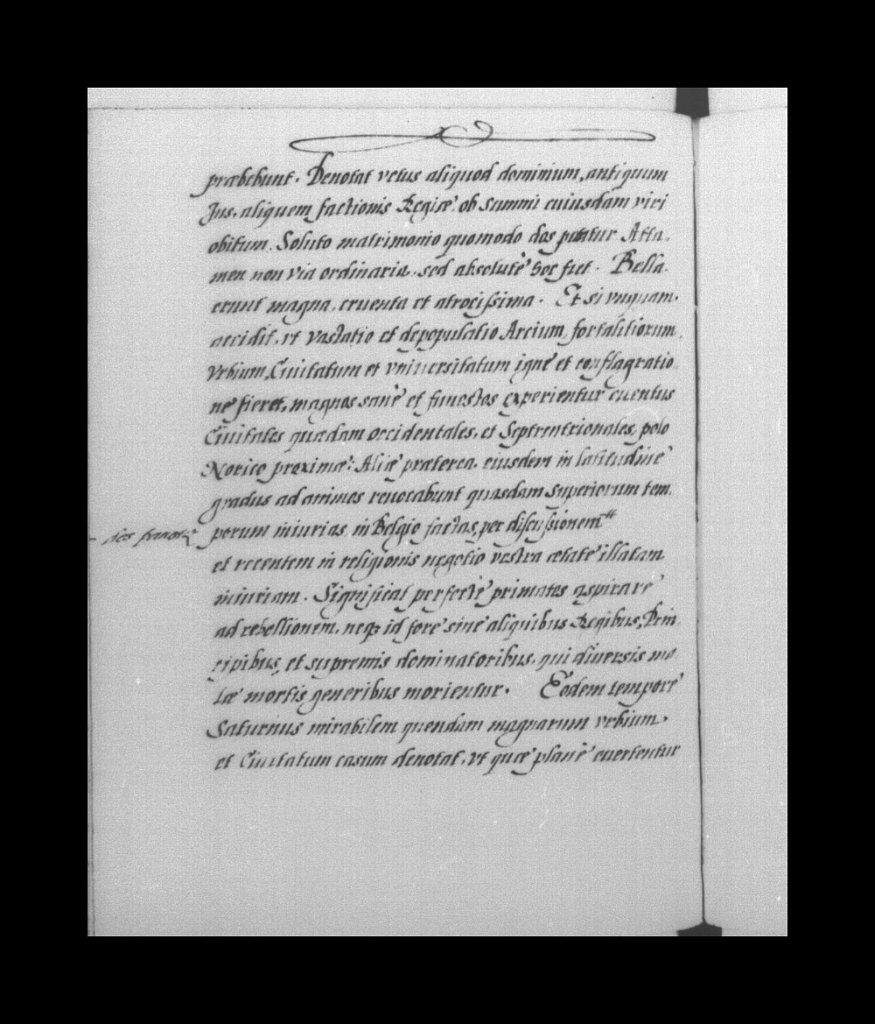 præbebunt. Denotat vetus aliquod dominium, antiquum
Jus, aliquem factionis Regiæ ob summi cuiusdam viri
obitum. Soluto matrimonio quomodo dos petatur Atta-
men non via ordinaria, sed absolutè hoc fiet. Bella.
erunt magna, cruenta et atrocissima. Et si vnquam.
accidit, vt vastatio et depopulatio Arcium, fortalitiorum,
Vrbium, Ciuitatum et vniuersitatum igne et conflagratio-
ne fieret, magnos sanè et funestos experientur euentus
Ciuitates quædam occidentales, et Septentrionales, polo
Norico proximæ: Aliæ præterea, eiusdem in latitudine
gradus ad animos reuocabunt quasdam superiorum tem-
porum iniurias, in Belgio factas, per discussionem
et recentem in religionis negotio vestra ætate illatam
iniuriam. Significat perfectè primates aspirare
ad rebellionem, neq3 id fore sine aliquibus Regibus, Prin-
cipibus, et supremis dominatoribus, qui diuersis mo
læ mortis generibus morientur. Eodem tempore
Saturnus mirabilem quendam magnarum vrbium,
et Ciuitatum casum denotat, vt quæ planè euertentur